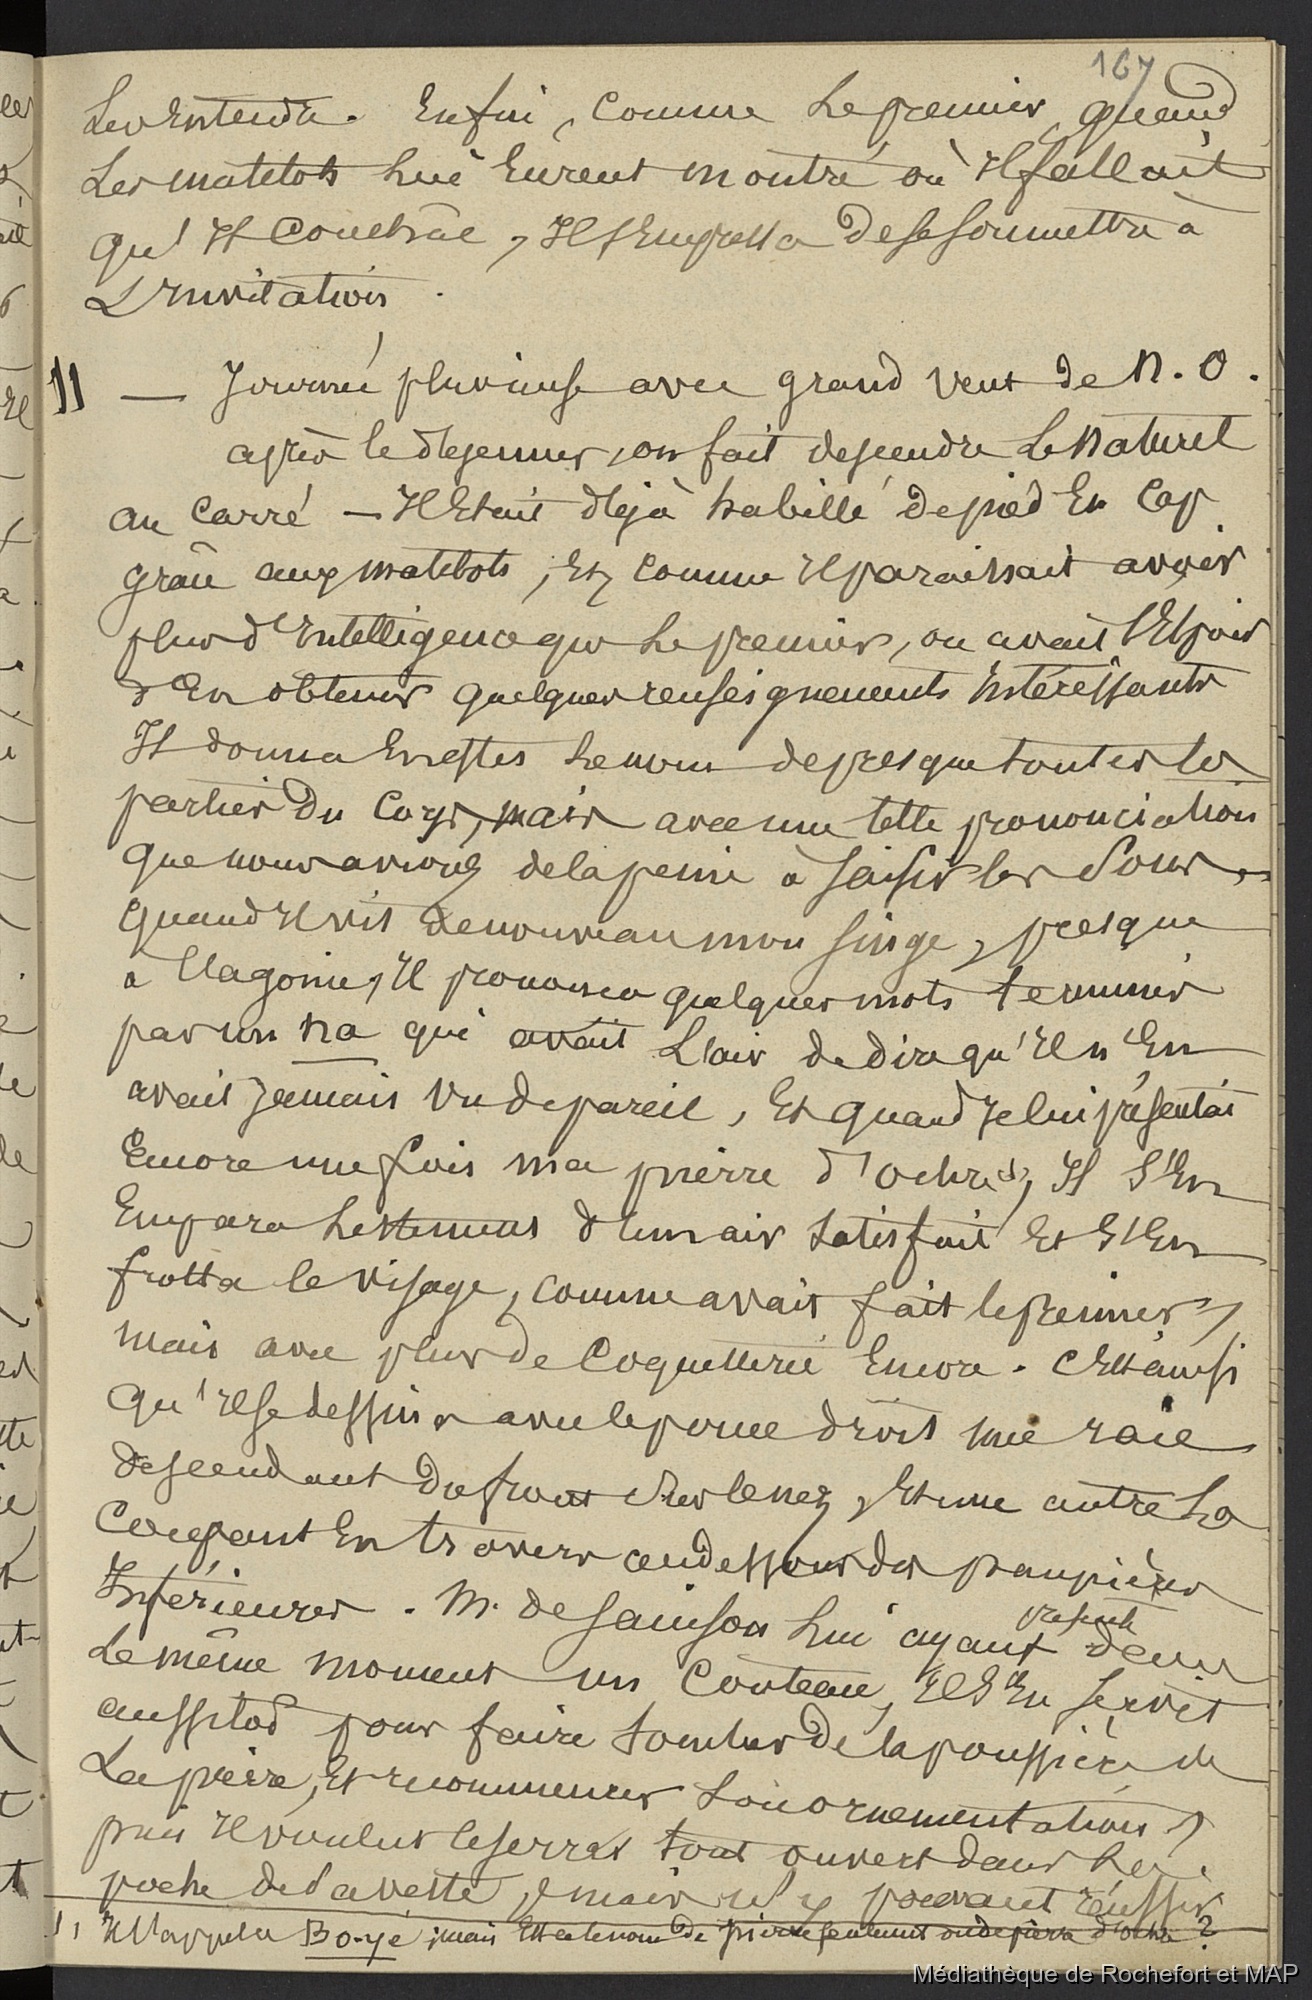 167
Les Entendre. Enfin, comme Le premier, quand
Les matelots Lui Eurent montré où Il fallait
qu'Il Couchât, Il s'Empressa de se soumettre à
L'Invitation.
11 — Journée pluvieuse avec grand vent de N. O.
après le déjeuner, on fait descendre Le Naturel
au Carré — Il Etait déjà habillé de pied En Cap
grâce aux matelots, Et, comme Il paraissait avoir
plus d'Intelligence que Le premier, on avait l'Espoir
d'En obtenir quelques renseignements Intéressants
Il donna En estes Le nom de presque toutes les
parties du Corps, mais avec une telle prononciation
que nous avions de la peine à saisir les Sons.
quand Il vit de nouveau mon singe, presque
à l'agonie, Il prononça quelques mots terminés
par un na qui avait L'air de dire qu'Il n'En
avait jamais vu de pareil, Et quand Je lui présentai
Encore une fois ma pierre d'ochre 1), Il S'En
Empara Lestement d'un air satisfait Et S'En
frotta le visage, comme avait fait le premier,
mais avec plus de Coquetterie Encore. C'Est ainsi
qu'Il se dessina avec le pouce droit une raie
descendant du front sur le nez, Et une autre La
Coupant En travers au dessous des paupières
Inférieures. M. de Sainson Lui ayant présenté dans
Le même moment un Couteau, Il S'En servit
aussitôt pour faire tomber de la poussière de
La pierre, Et recommencer Son ornementation,
puis Il voulut le serrer tout ouvert dans La
poche de Sa veste, mais n'y pouvant réussir
1) Il l'appela Bo-yé, mais Est-ce le nom de pierre seulement ou de pierre d'ochre ?
Médiathèque de Rochefort et MAP